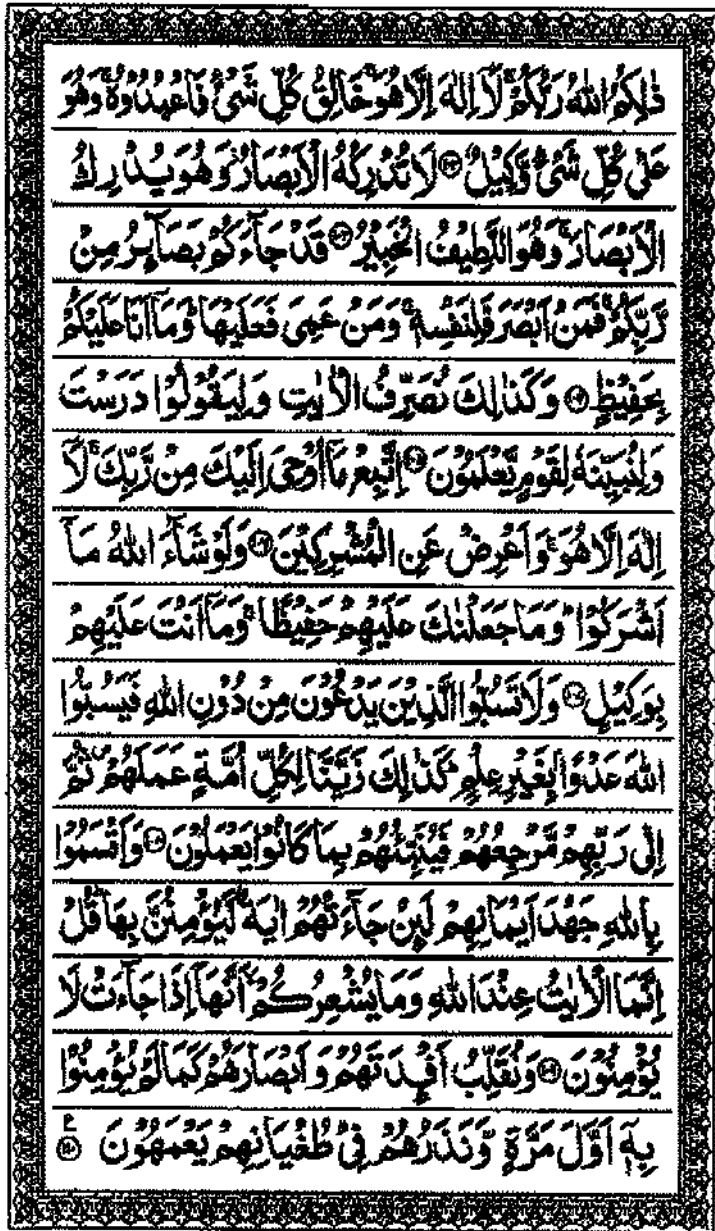 ذٰلِكُمُ اللّٰهُ رَبُّكُمْ ۚ لَاۤ اِلٰهَ اِلَّا هُوَ ۚ خَالِقُ كُلِّ شَیْءٍ فَاعْبُدُوْهُ ۚ وَهُوَ
عَلٰی كُلِّ شَیْءٍ وَّكِیْلٌ ۝۱۰۲ لَا تُدْرِكُهُ الْاَبْصَارُ ؗ وَهُوَ یُدْرِكُ
الْاَبْصَارَ ۚ وَهُوَ اللَّطِیْفُ الْخَبِیْرُ ۝۱۰۳ قَدْ جَآءَكُمْ بَصَآىِٕرُ مِنْ
رَّبِّكُمْ ۚ فَمَنْ اَبْصَرَ فَلِنَفْسِهٖ ۚ وَمَنْ عَمِیَ فَعَلَیْهَا ؕ وَمَاۤ اَنَا عَلَیْكُمْ
بِحَفِیْظٍ ۝۱۰۴ وَكَذٰلِكَ نُصَرِّفُ الْاٰیٰتِ وَلِیَقُوْلُوْا دَرَسْتَ
وَلِنُبَیِّنَهٗ لِقَوْمٍ یَّعْلَمُوْنَ ۝۱۰۵ اِتَّبِعْ مَاۤ اُوْحِیَ اِلَیْكَ مِنْ رَّبِّكَ ۚ لَاۤ
اِلٰهَ اِلَّا هُوَ ۚ وَاَعْرِضْ عَنِ الْمُشْرِكِیْنَ ۝۱۰۶ وَلَوْ شَآءَ اللّٰهُ مَاۤ
اَشْرَكُوْا ؕ وَمَا جَعَلْنٰكَ عَلَیْهِمْ حَفِیْظًا ۚ وَمَاۤ اَنْتَ عَلَیْهِمْ
بِوَكِیْلٍ ۝۱۰۷ وَلَا تَسُبُّوا الَّذِیْنَ یَدْعُوْنَ مِنْ دُوْنِ اللّٰهِ فَیَسُبُّوا
اللّٰهَ عَدْوًۢا بِغَیْرِ عِلْمٍ ؕ كَذٰلِكَ زَیَّنَّا لِكُلِّ اُمَّةٍ عَمَلَهُمْ ۪ ثُمَّ
اِلٰی رَبِّهِمْ مَّرْجِعُهُمْ فَیُنَبِّئُهُمْ بِمَا كَانُوْا یَعْمَلُوْنَ ۝۱۰۸ وَاَقْسَمُوْا
بِاللّٰهِ جَهْدَ اَیْمَانِهِمْ لَىِٕنْ جَآءَتْهُمْ اٰیَةٌ لَّیُؤْمِنُنَّ بِهَا ؕ قُلْ
اِنَّمَا الْاٰیٰتُ عِنْدَ اللّٰهِ وَمَا یُشْعِرُكُمْ ۙ اَنَّهَاۤ اِذَا جَآءَتْ لَا
یُؤْمِنُوْنَ ۝۱۰۹ وَنُقَلِّبُ اَفْـِٕدَتَهُمْ وَاَبْصَارَهُمْ كَمَا لَمْ یُؤْمِنُوْا
بِهٖۤ اَوَّلَ مَرَّةٍ وَّنَذَرُهُمْ فِیْ طُغْیَانِهِمْ یَعْمَهُوْنَ ۝۱۱۰